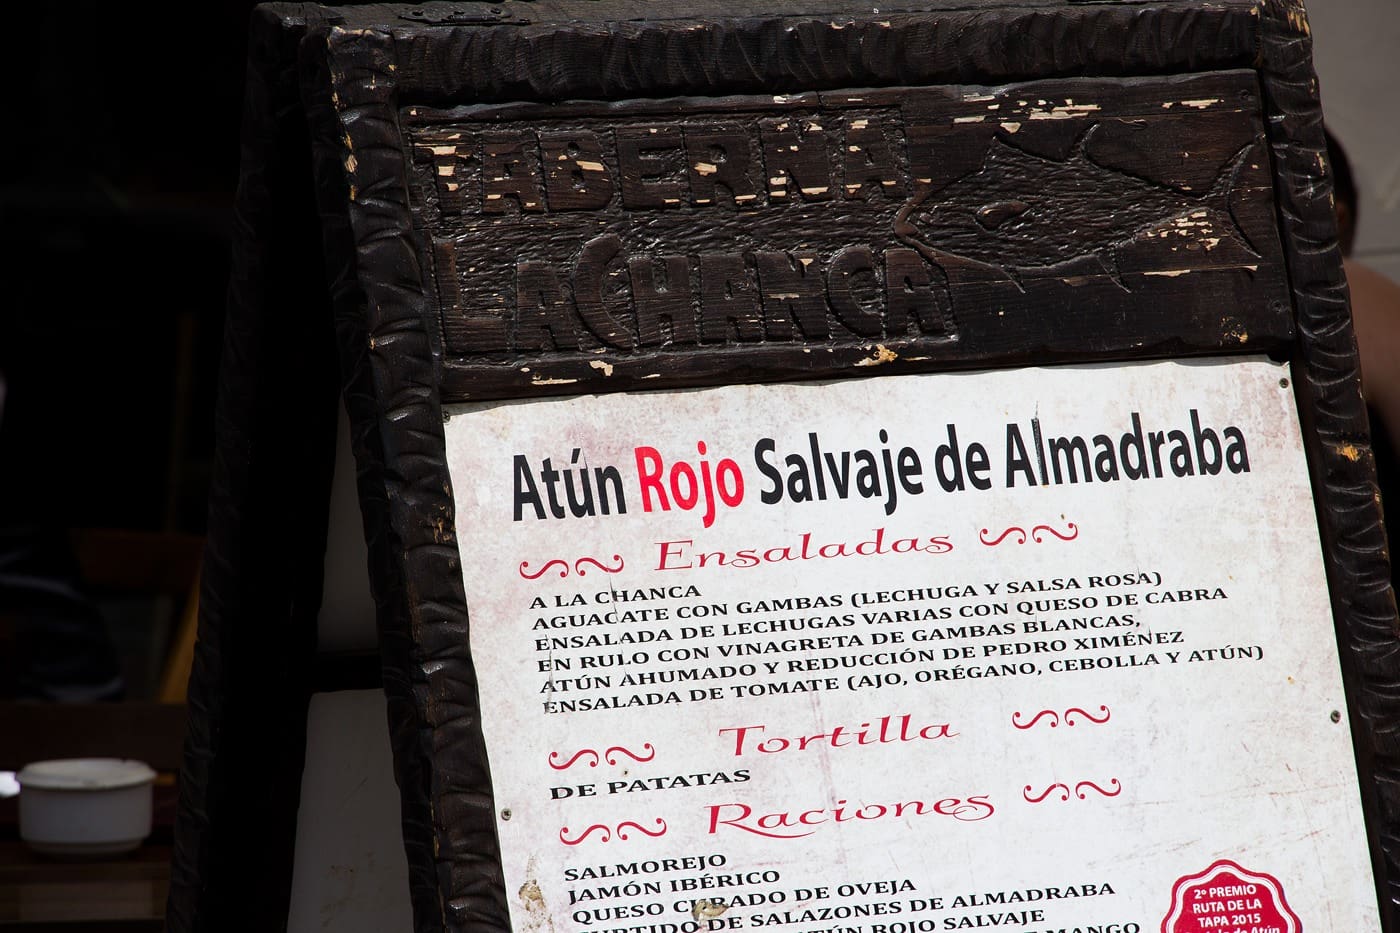 TABERNA
LA CHANCA
Atún Rojo Salvaje de Almadraba
Ensaladas
A LA CHANCA
AGUACATE CON GAMBAS (LECHUGA Y SALSA ROSA)
ENSALADA DE LECHUGAS VARIAS CON QUESO DE CABRA
EN RULO CON VINAGRETA DE GAMBAS BLANCAS,
ATÚN AHUMADO Y REDUCCIÓN DE PEDRO XIMÉNEZ
ENSALADA DE TOMATE (AJO, ORÉGANO, CEBOLLA Y ATÚN)
Tortilla
DE PATATAS
Raciones
SALMOREJO
JAMÓN IBÉRICO
QUESO CURADO DE OVEJA
SURTIDO DE SALAZONES DE ALMADRABA
ATÚN ROJO SALVAJE
MANGO
2º PREMIO
RUTA DE LA
TAPA 2015
de Atún